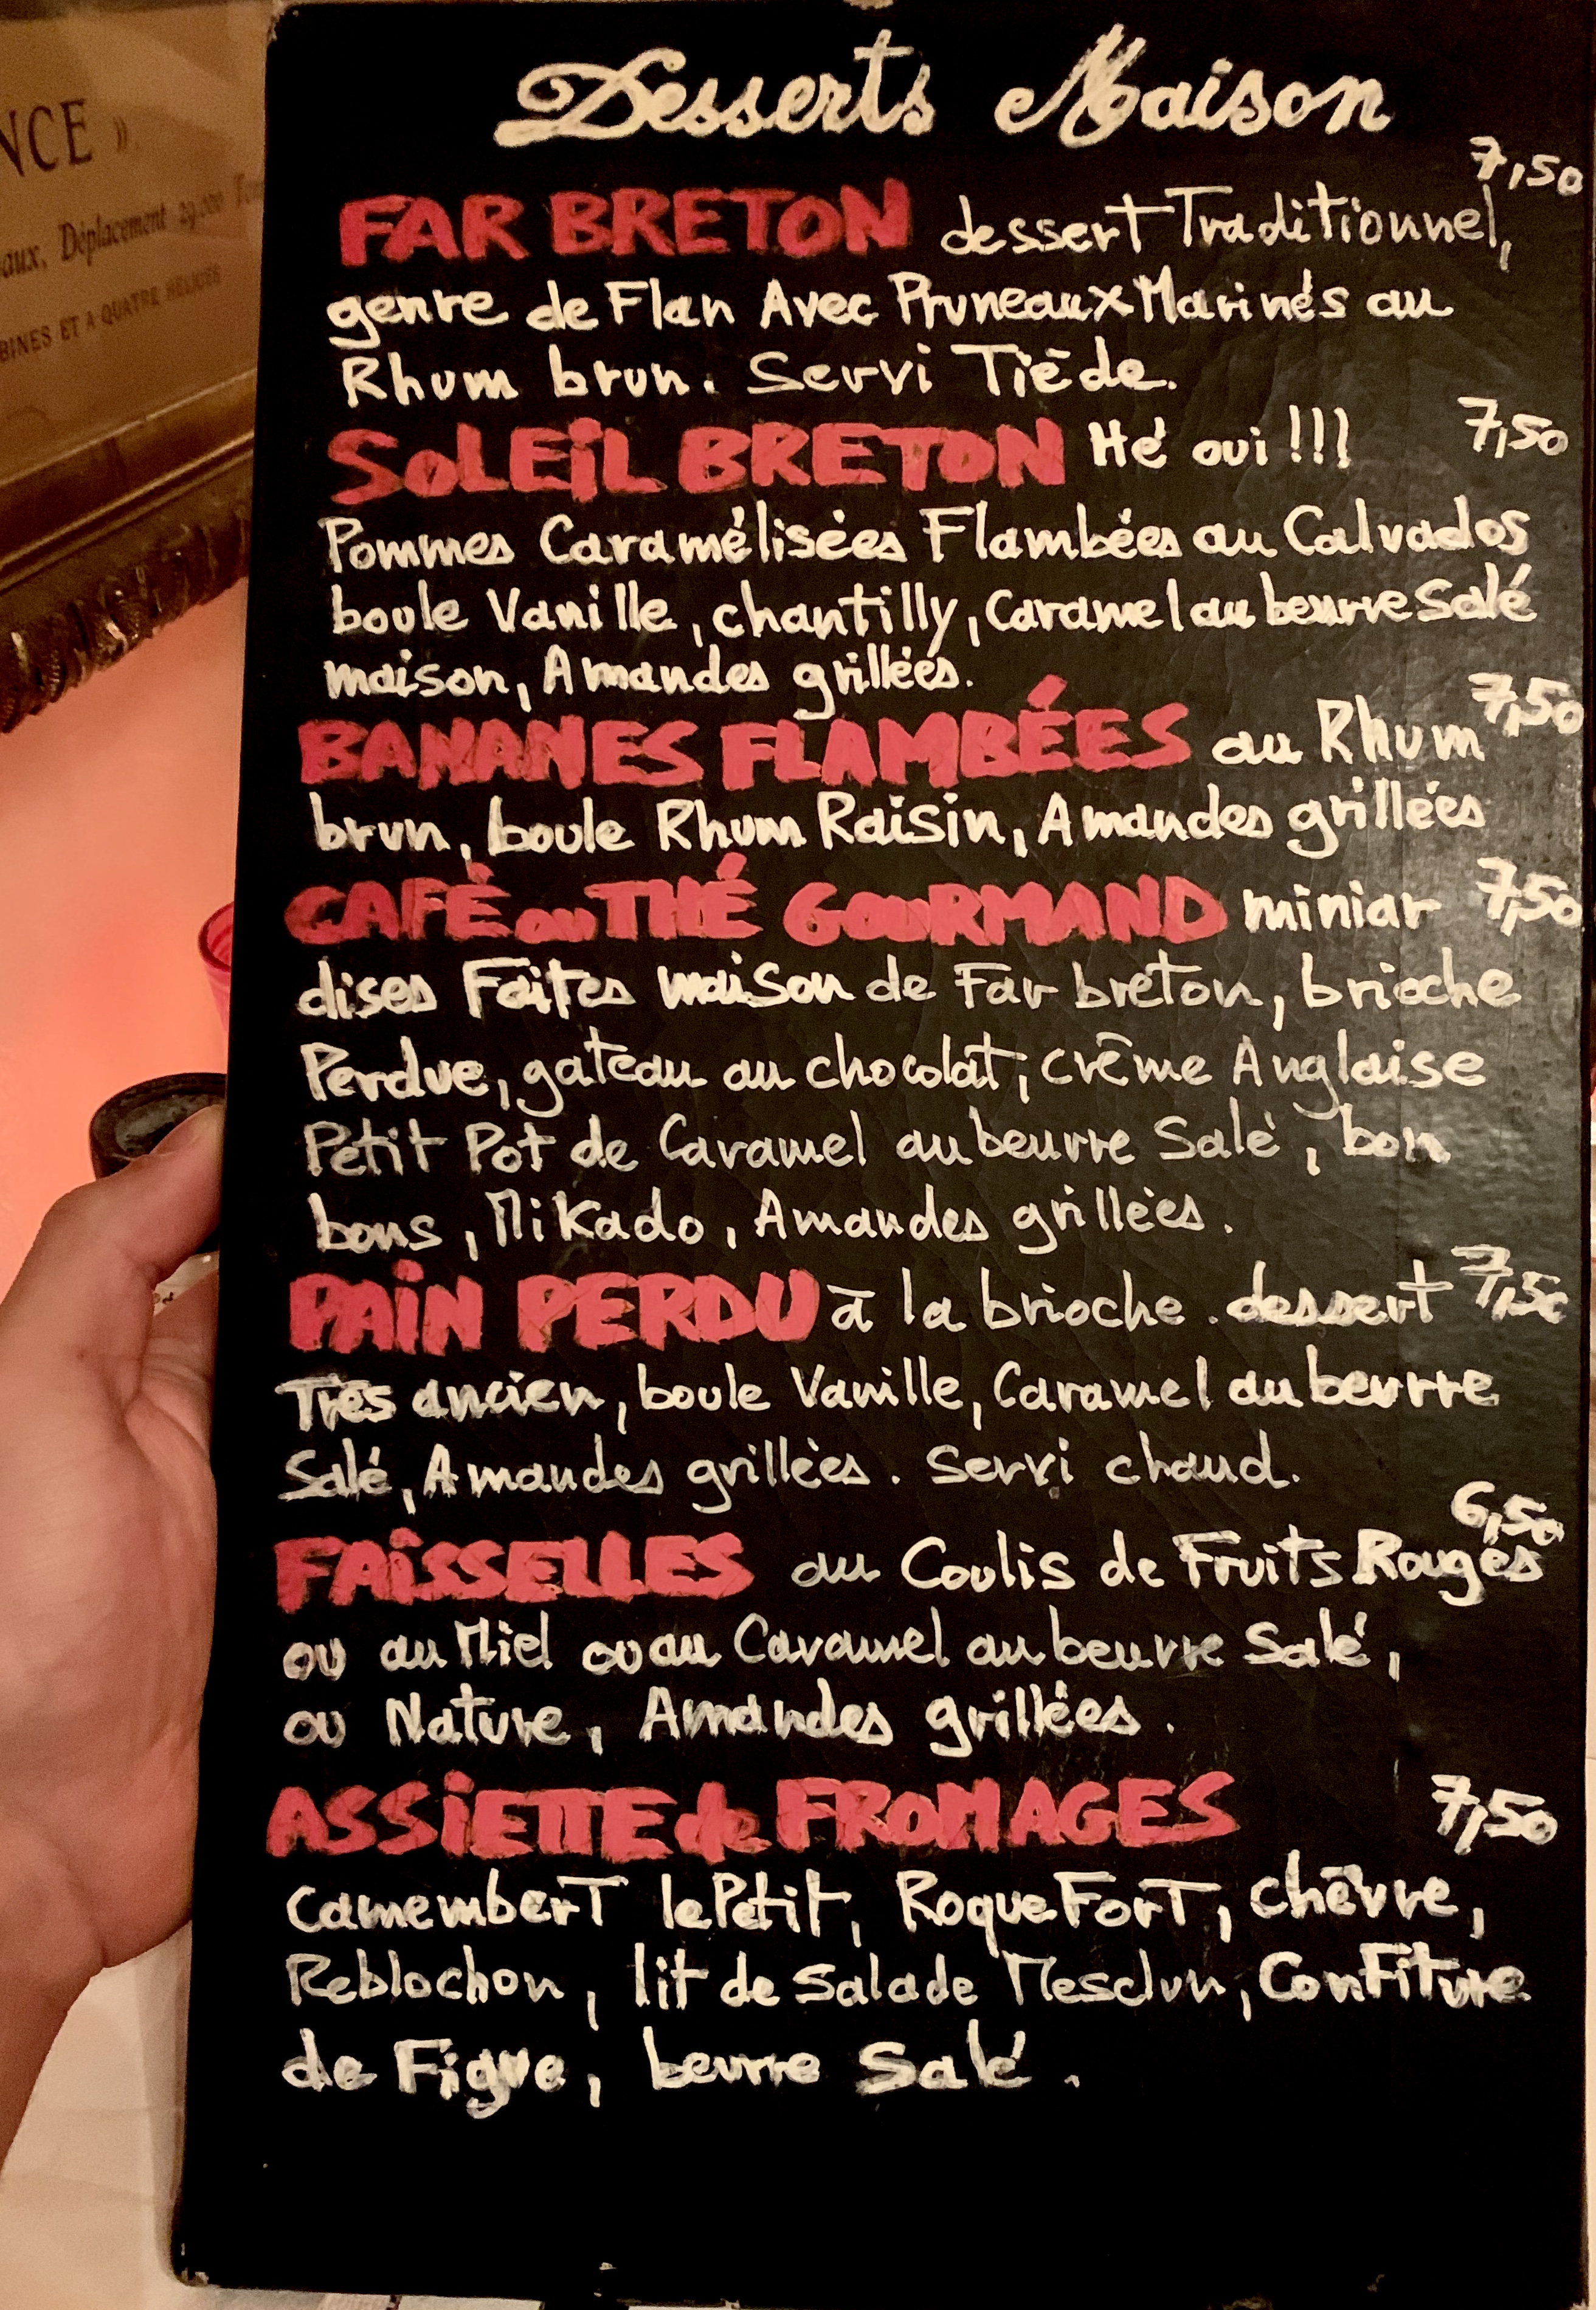 NCE »
aux, Déplacement 29.000
BINES ET A QUATRE HÉLICES
Desserts Maison
7,50
FAR BRETON dessert Traditionnel,
genre de Flan Avec Pruneaux Marinés au
Rhum brun. Servi Tiède.
SOLEIL BRETON Hé oui !!! 7,50
Pommes Caramélisées Flambées au Calvados
boule Vanille, chantilly, Caramel au beurre Salé
maison, Amandes grillées.
BANANES FLAMBÉES au Rhum 7,50
brun, boule Rhum Raisin, Amandes grillées
CAFÈ ou THÉ GOURMAND miniar 7,50
dises Faites maison de Far breton, brioche
Perdue, gateau au chocolat, crème Anglaise
Petit Pot de Caramel au beurre Salé, bon
bons, Mikado, Amandes grillées.
PAIN PERDU à la brioche. dessert 7,50
Très ancien, boule Vanille, Caramel au beurre
Salé, Amandes grillées. Servi chaud.
6,50
FAÎSSELLES au Coulis de Fruits Rouges
ou au Miel ou au Caramel au beurre Salé,
ou Nature, Amandes grillées.
ASSIETTE de FROMAGES 7,50
Camembert le Petit, RoqueFort, chèvre,
Reblochon, lit de Salade Mesclun, Confiture
de Figue, beurre Salé.